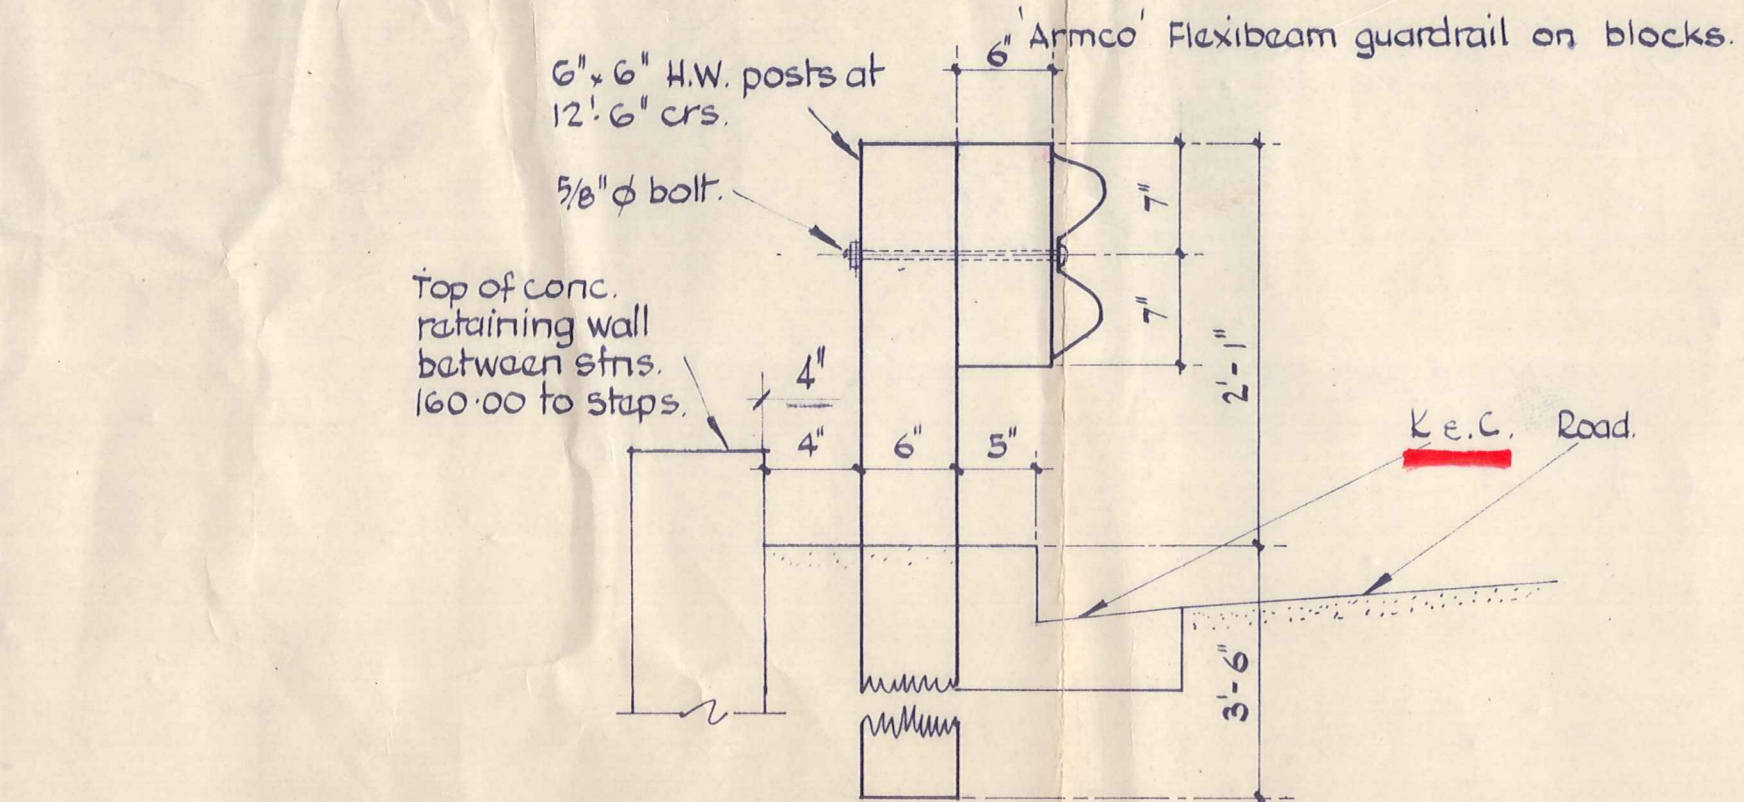 'Armco' Flexibeam guardrail on blocks.
6"
6" x 6" H.W. posts at
12'-6" crs.
5/8" φ bolt.
7"
7"
2'-1"
Top of conc.
retaining wall
between stns.
160·00 to steps.
4"
4"
6"
5"
K & C.
Road.
3'-6"